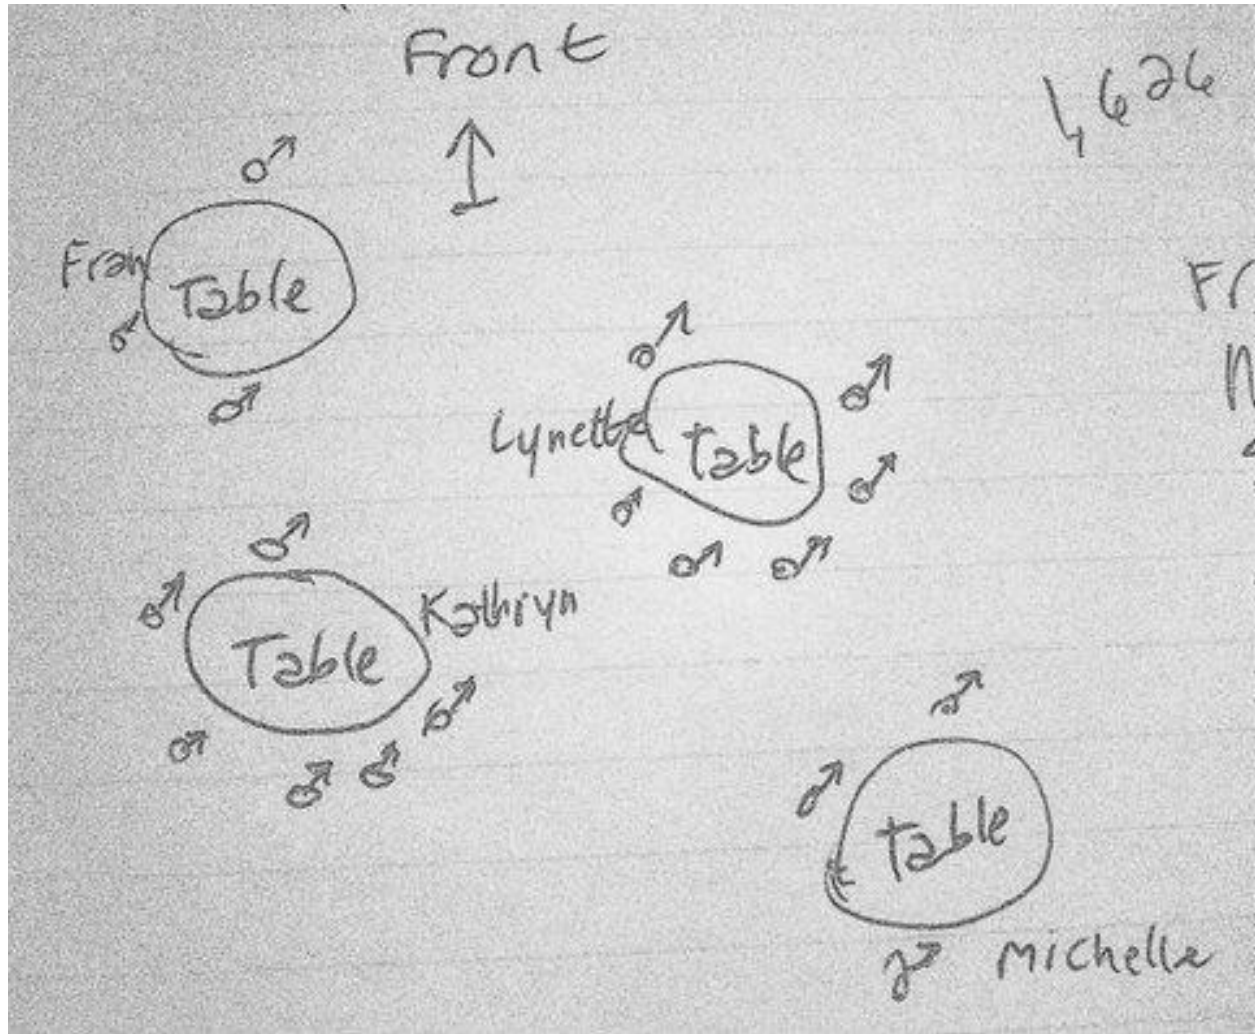 Front
4626
Fran
Table
Fr
Lynette
Table
Kathryn
Table
Table
Michelle